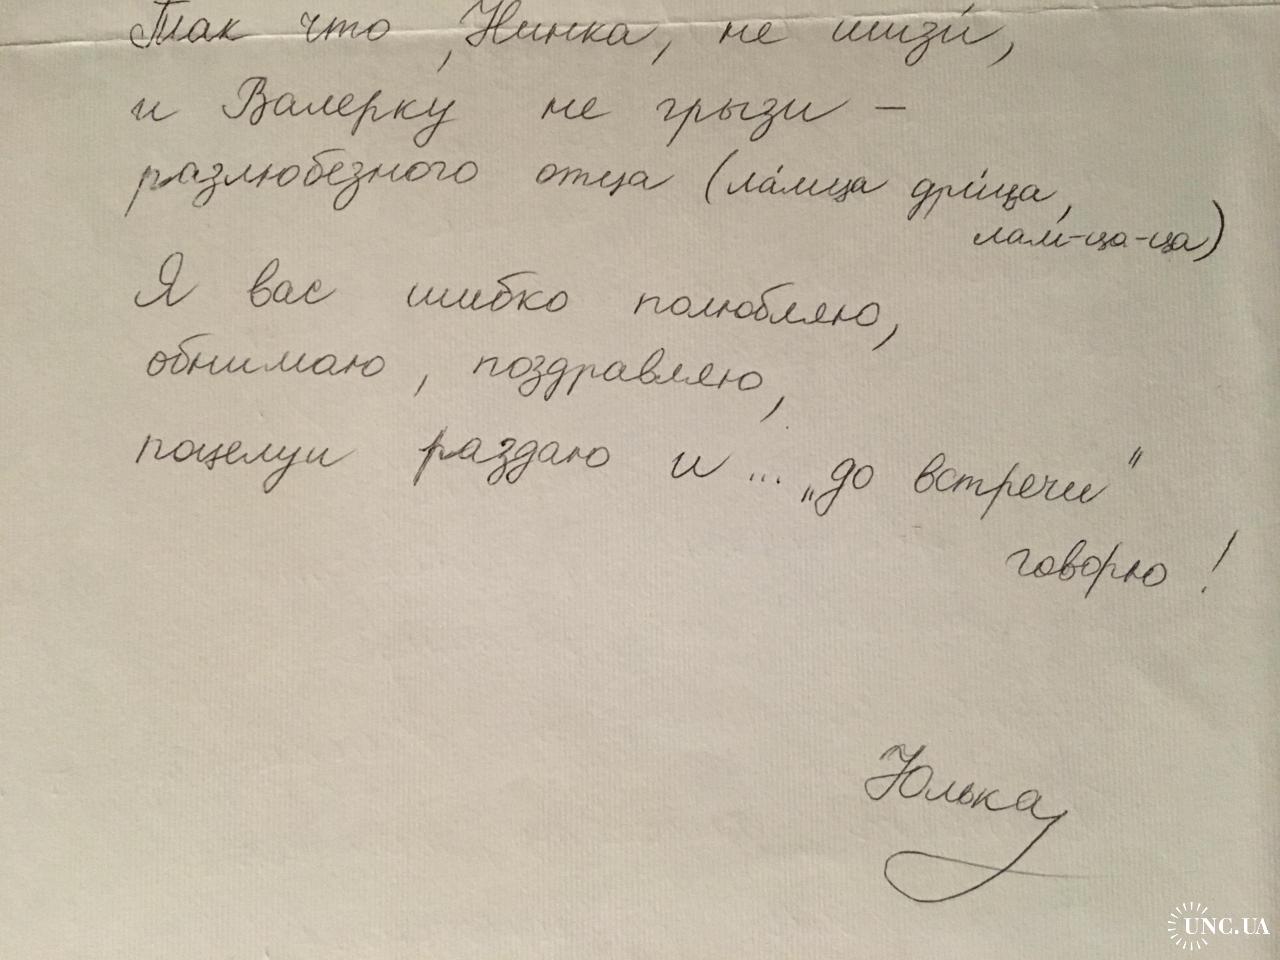 Так что, Нинка, не шизи́,
и Валерку не грызи –
разлюбезного отца (ла́мца дри́ца,
лам-ца-ца)
Я вас шибко полюбляю,
обнимаю, поздравляю,
поцелуи раздаю и... „до встречи"
говорю!
Юлька
UNC.UA